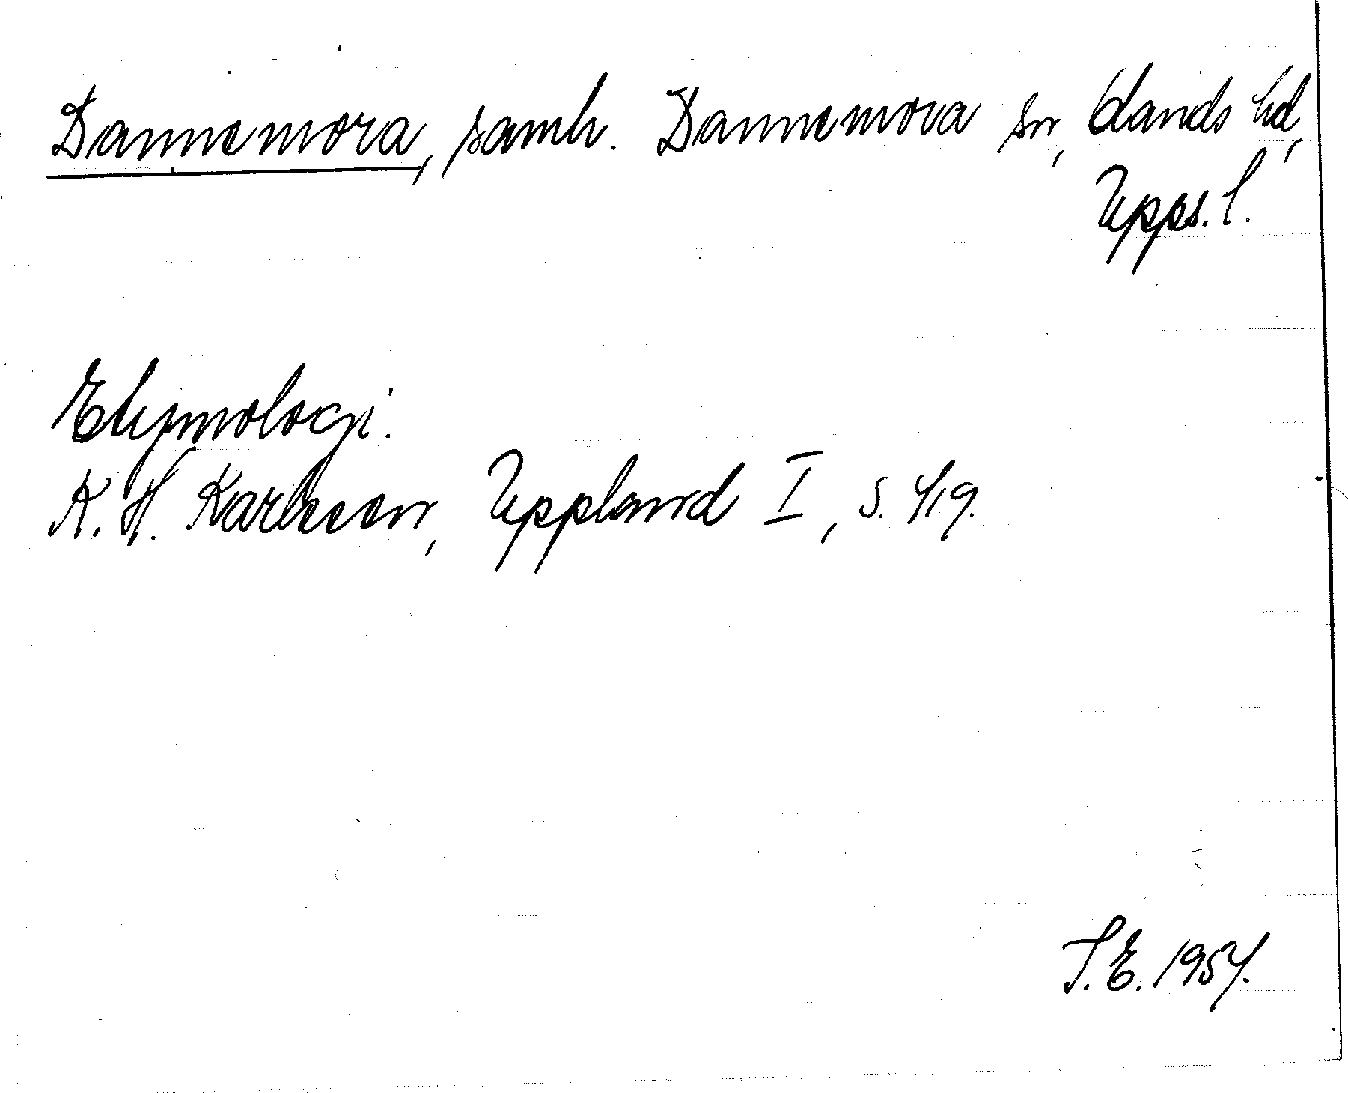 Dannemora, samh. Dannemora sn, Olands hd,
Upps. l.
Etymologi.
K. H. Karlsson, Uppland I, s. 419.
T. E. 1954.